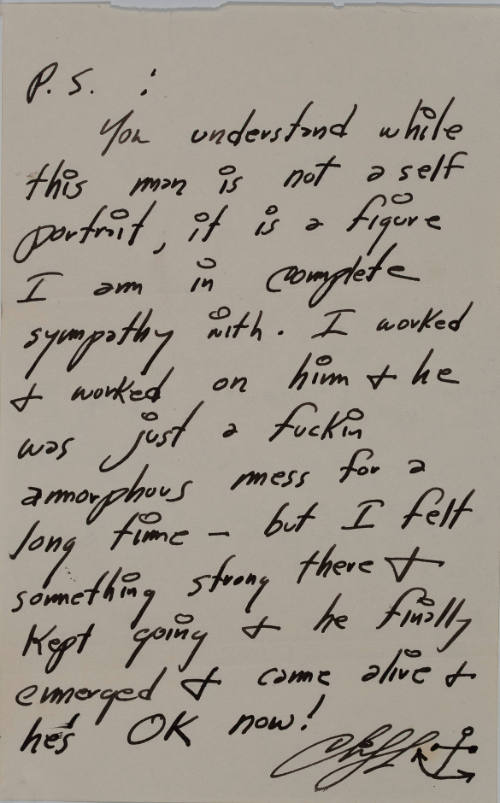 P.S. :
You understand while
this man is not a self
portrait, it is a figure
I am in complete
sympathy with. I worked
+ worked on him + he
was just a fuckin
amorphous mess for a
long time - but I felt
something strong there +
kept going + he finally
emerged + came alive +
he's OK now!